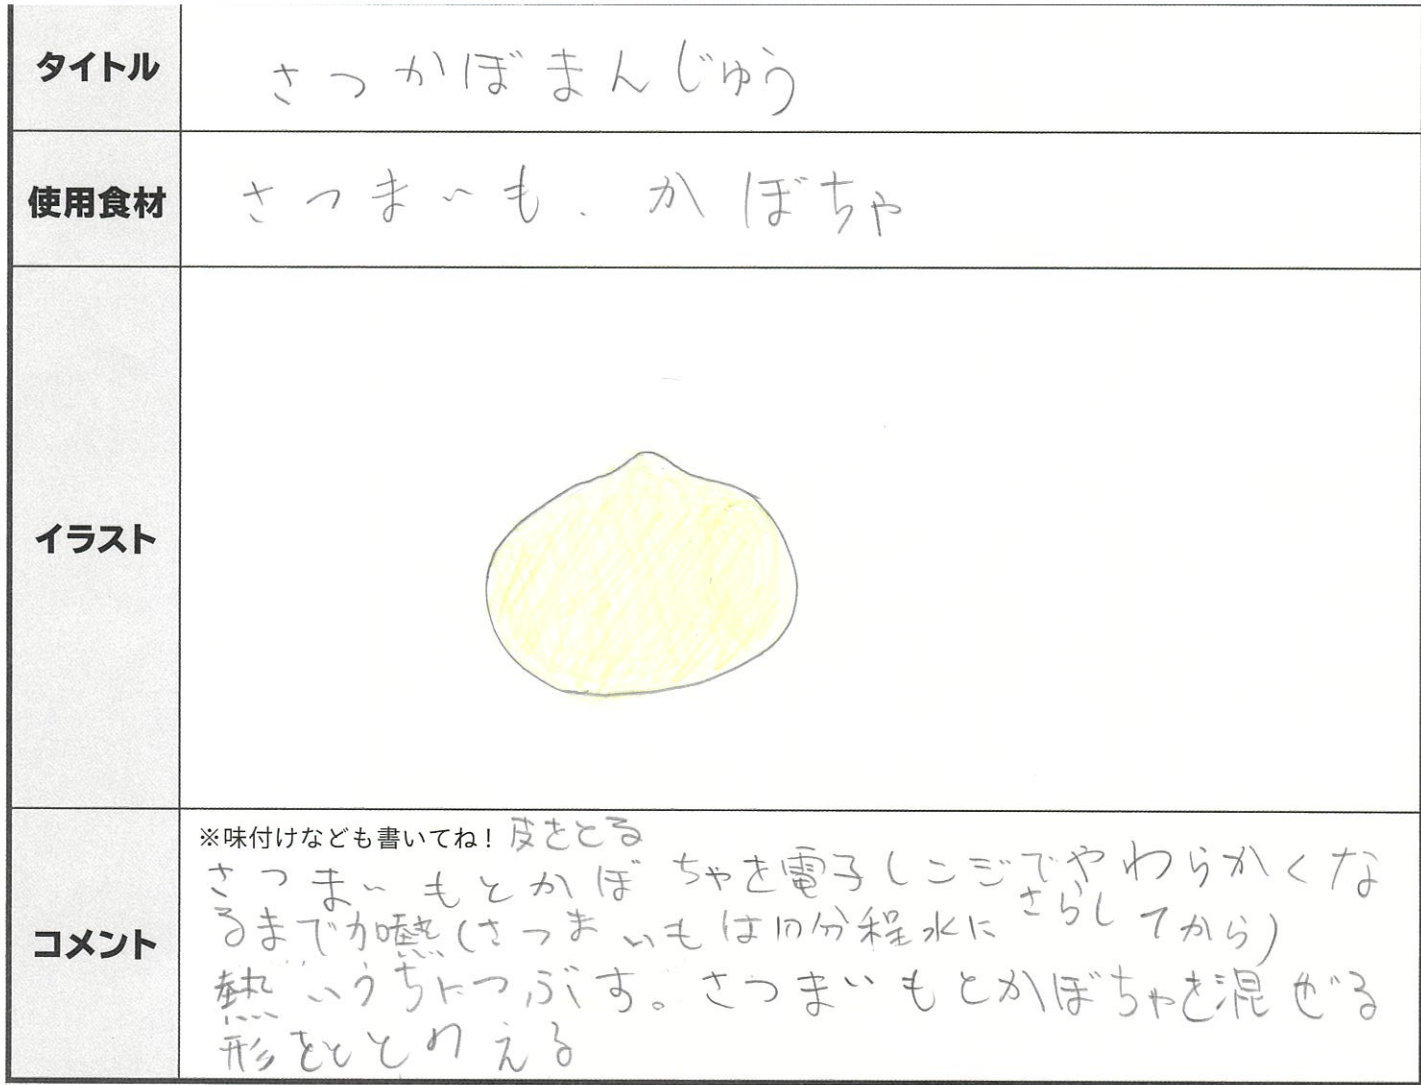 タイトル
さつかぼまんじゅう
使用食材
さつまいも、かぼちゃ
イラスト
コメント
※味付けなども書いてね! 皮をとる
さつまいもとかぼちゃを電子レンジでやわらかくな
るまで加熱(さつまいもは10分程水にさらしてから)
熱いうちにつぶす。さつまいもとかぼちゃを混ぜる
形をととのえる